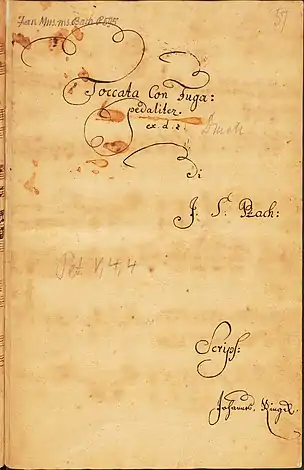 Mus. ms. Bach P 595
57
Toccata Con Fuga:
pedaliter.
ex. d. #.
Bach
di
J. S. Bach:
Pet. V, 4, 4
Scrips:
Johannes. Ringk.